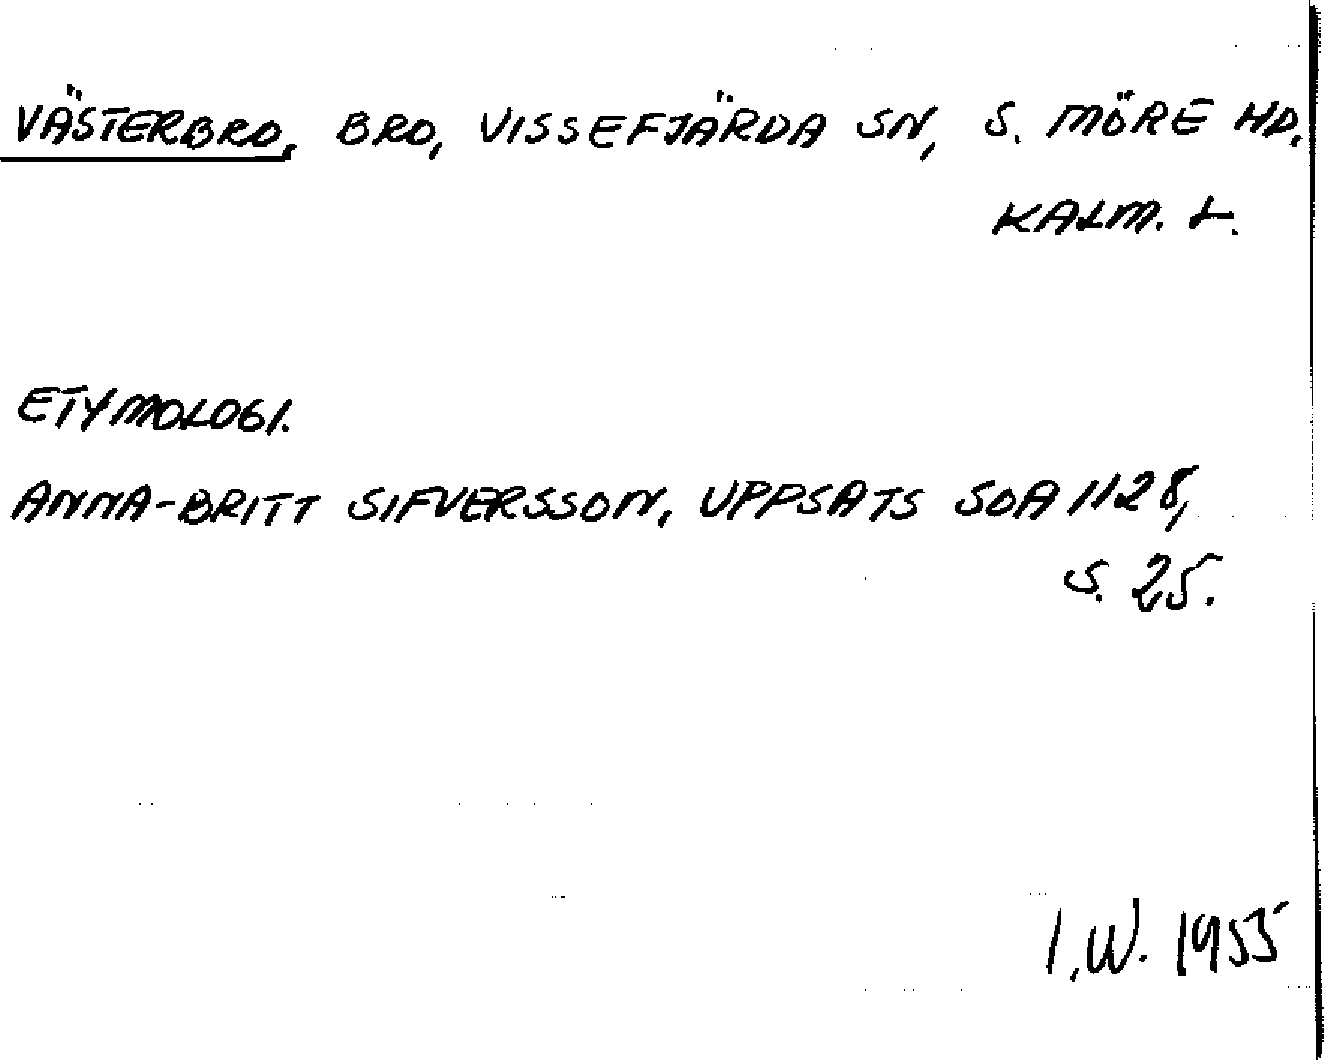 VÄSTERBRO, BRO, VISSEFJÄRDA SN, S. MÖRE HD.
KALM. L.
ETYMOLOGI.
ANNA-BRITT SIFVERSSON, UPPSATS SOA 1128,
S. 25.
I.W. 1955